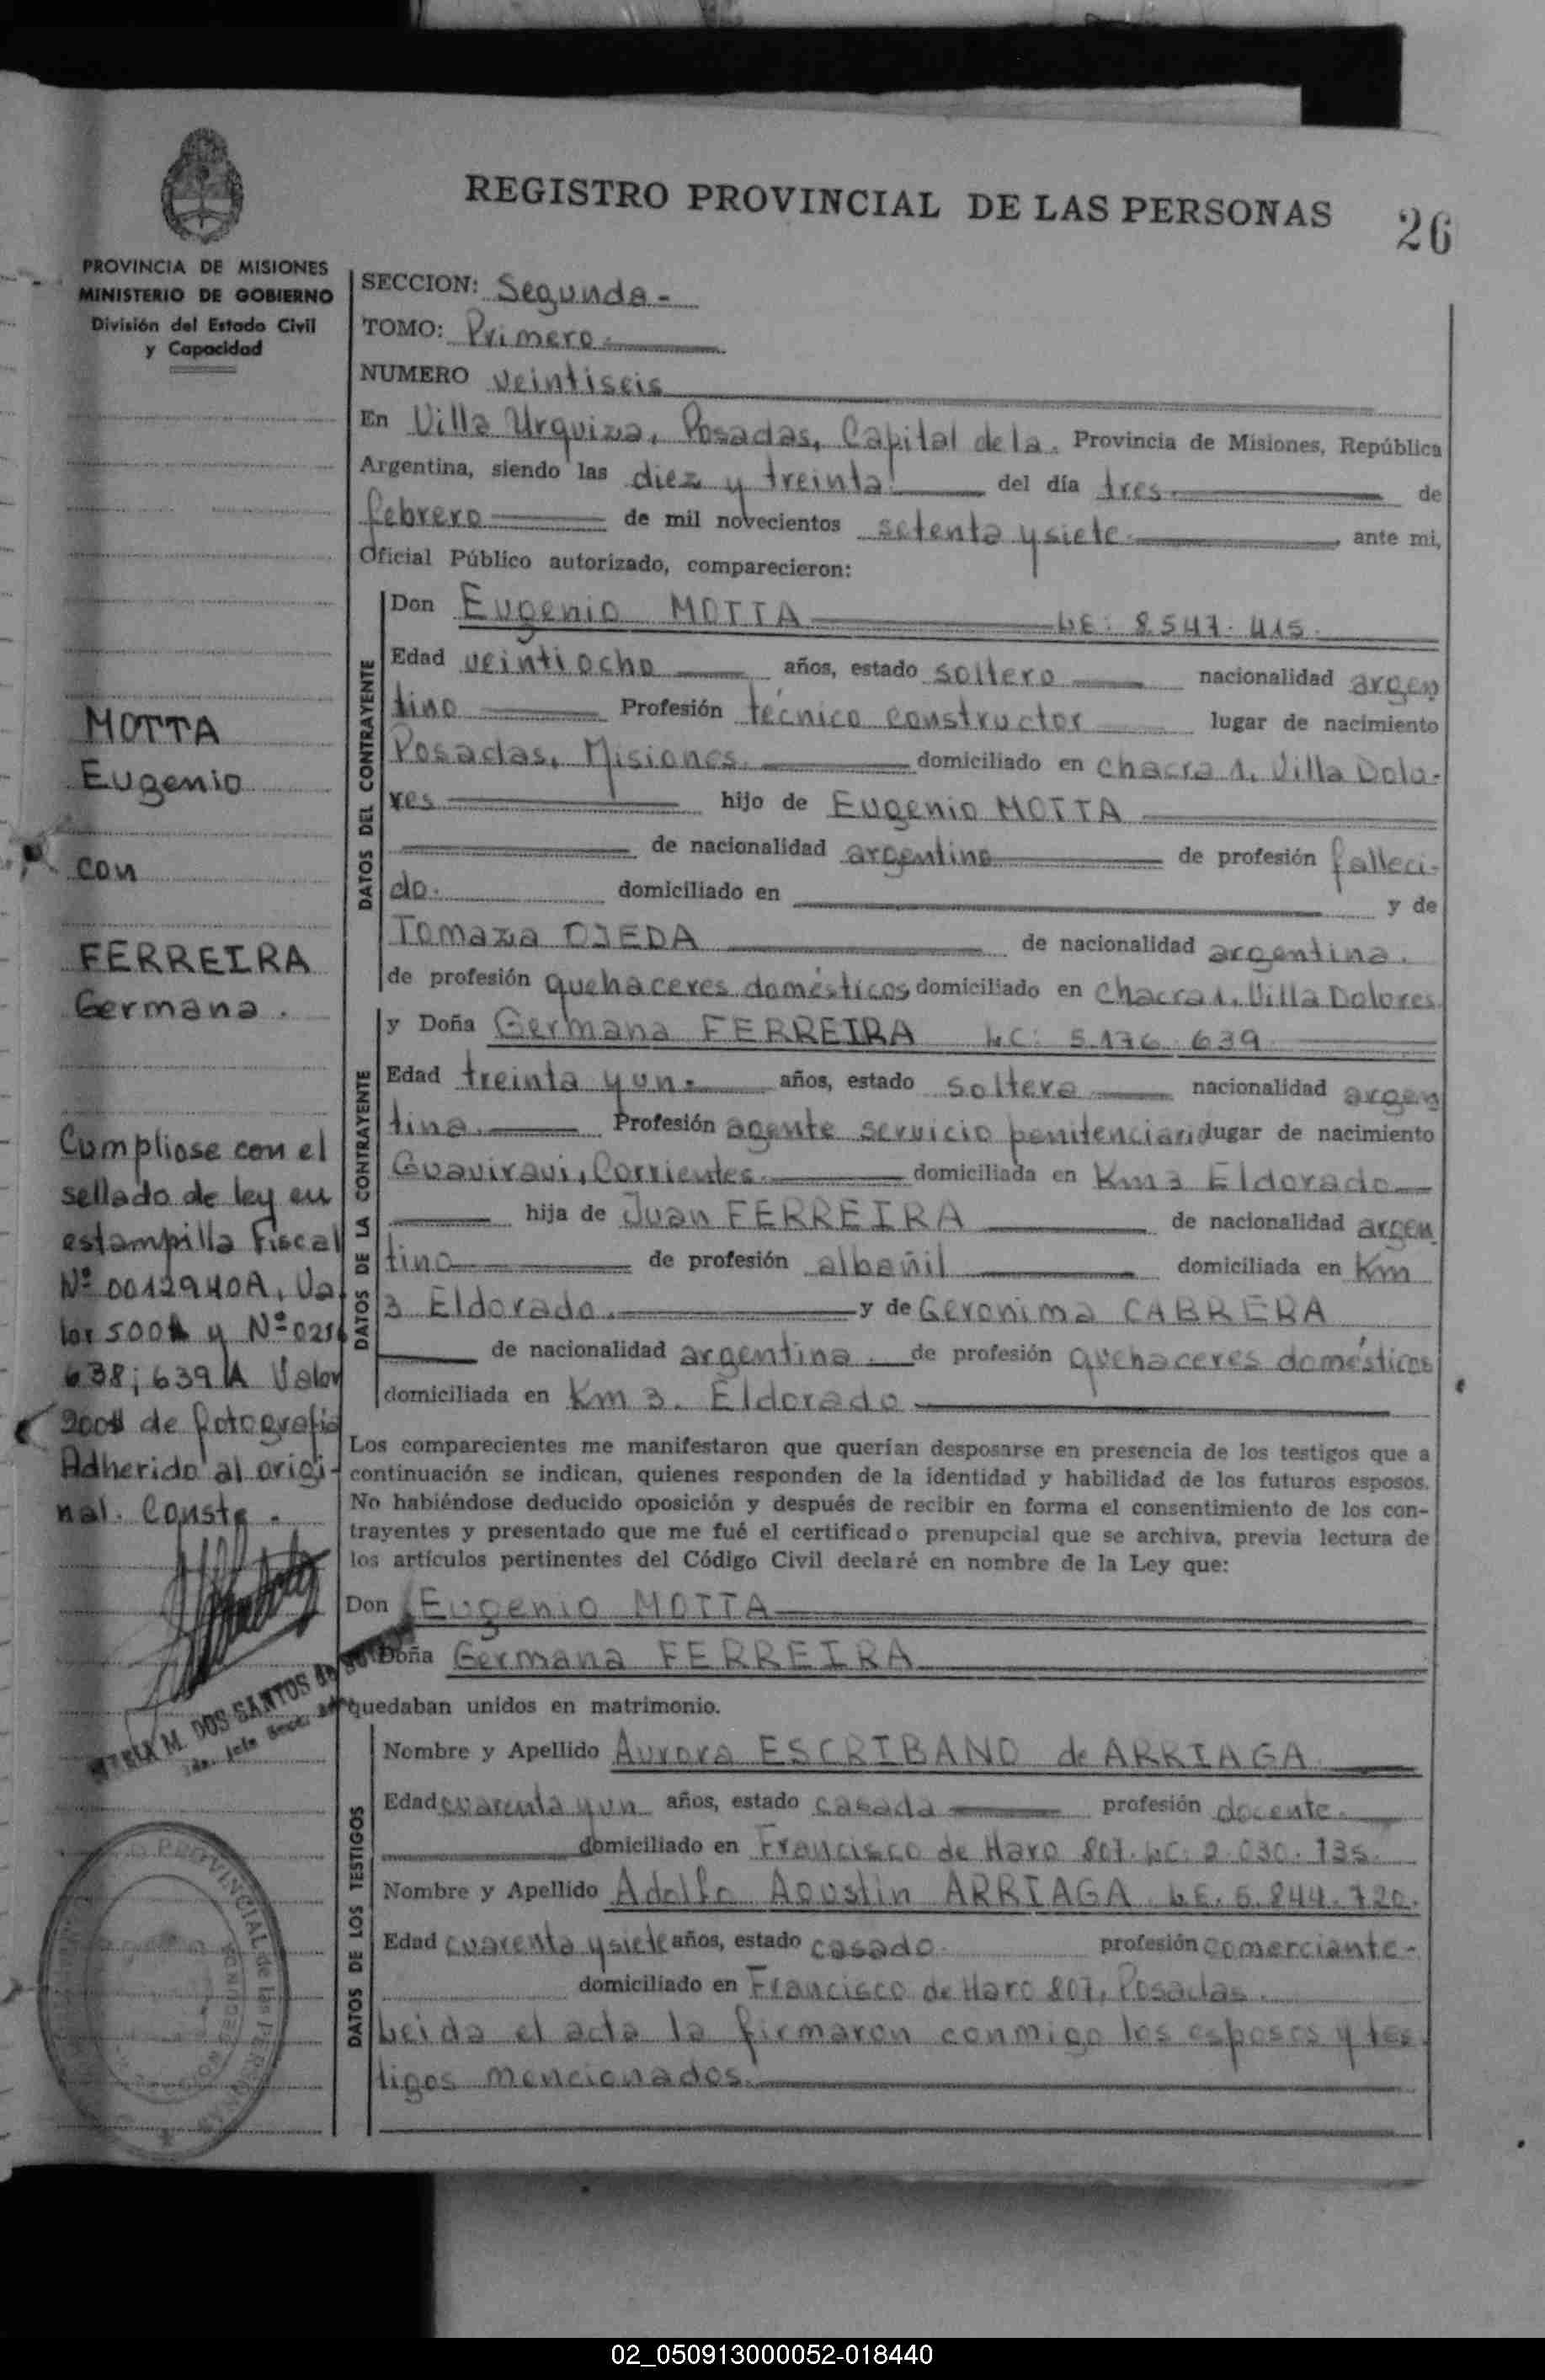 REGISTRO PROVINCIAL DE LAS PERSONAS
26
PROVINCIA DE MISIONES
MINISTERIO DE GOBIERNO
División del Estado Civil
y Capacidad
SECCION: Segunda-
TOMO: Primero.
NUMERO veintiseis
En Villa Urquiza, Posadas, Capital de la. Provincia de Misiones, República
Argentina, siendo las diez y treinta del día tres de
febrero de mil novecientos setenta y siete ante mi,
Oficial Público autorizado, comparecieron:
DATOS DEL CONTRAYENTE
Don Eugenio MOTTA LE: 8.547.415.
Edad veintiocho años, estado soltero nacionalidad argen
tino Profesión técnico constructor lugar de nacimiento
Posadas, Misiones. domiciliado en chacra 1, Villa Dolo-
res hijo de Eugenio MOTTA
de nacionalidad argentino de profesión falleci-
do. domiciliado en y de
Tomaza OJEDA de nacionalidad argentina.
de profesión quehaceres domésticos domiciliado en chacra 1, Villa Dolores
DATOS DE LA CONTRAYENTE
y Doña Germana FERREIRA LC: 5.176.639
Edad treinta y un. años, estado soltera nacionalidad argen
tina. Profesión agente servicio penitenciario lugar de nacimiento
Guaviravi, Corrientes. domiciliada en Km 3 Eldorado
hija de Juan FERREIRA de nacionalidad argen
tino de profesión albañil domiciliada en Km
3 Eldorado. y de Geronima CABRERA
de nacionalidad argentina. de profesión quehaceres domésticos
domiciliada en Km 3. Eldorado
Los comparecientes me manifestaron que querían desposarse en presencia de los testigos que a
continuación se indican, quienes responden de la identidad y habilidad de los futuros esposos.
No habiéndose deducido oposición y después de recibir en forma el consentimiento de los con-
trayentes y presentado que me fué el certificado prenupcial que se archiva, previa lectura de
los artículos pertinentes del Código Civil declaré en nombre de la Ley que:
Don Eugenio MOTTA
Doña Germana FERREIRA
quedaban unidos en matrimonio.
DATOS DE LOS TESTIGOS
Nombre y Apellido Aurora ESCRIBANO de ARRIAGA
Edad cuarenta y un años, estado casada profesión docente.
domiciliado en Francisco de Haro 807. LC: 2.030.135.
Nombre y Apellido Adolfo Agustin ARRIAGA LE. 5.844.720.
Edad cuarenta y siete años, estado casado. profesión comerciante-
domiciliado en Francisco de Haro 807, Posadas.
Leida el acta la firmaron conmigo los esposos y tes
tigos mencionados.
MOTTA
Eugenio
con
FERREIRA
Germana.
Cumpliose con el
sellado de ley en
estampilla Fiscal
Nº 0012940A, Va
lor 500$ y Nº
638; 639 A Valor
de fotografia
Adherido al origi-
nal. Conste.
M. DOS SANTOS
PROVINCIAL de las
MISIONES
02_050913000052-018440